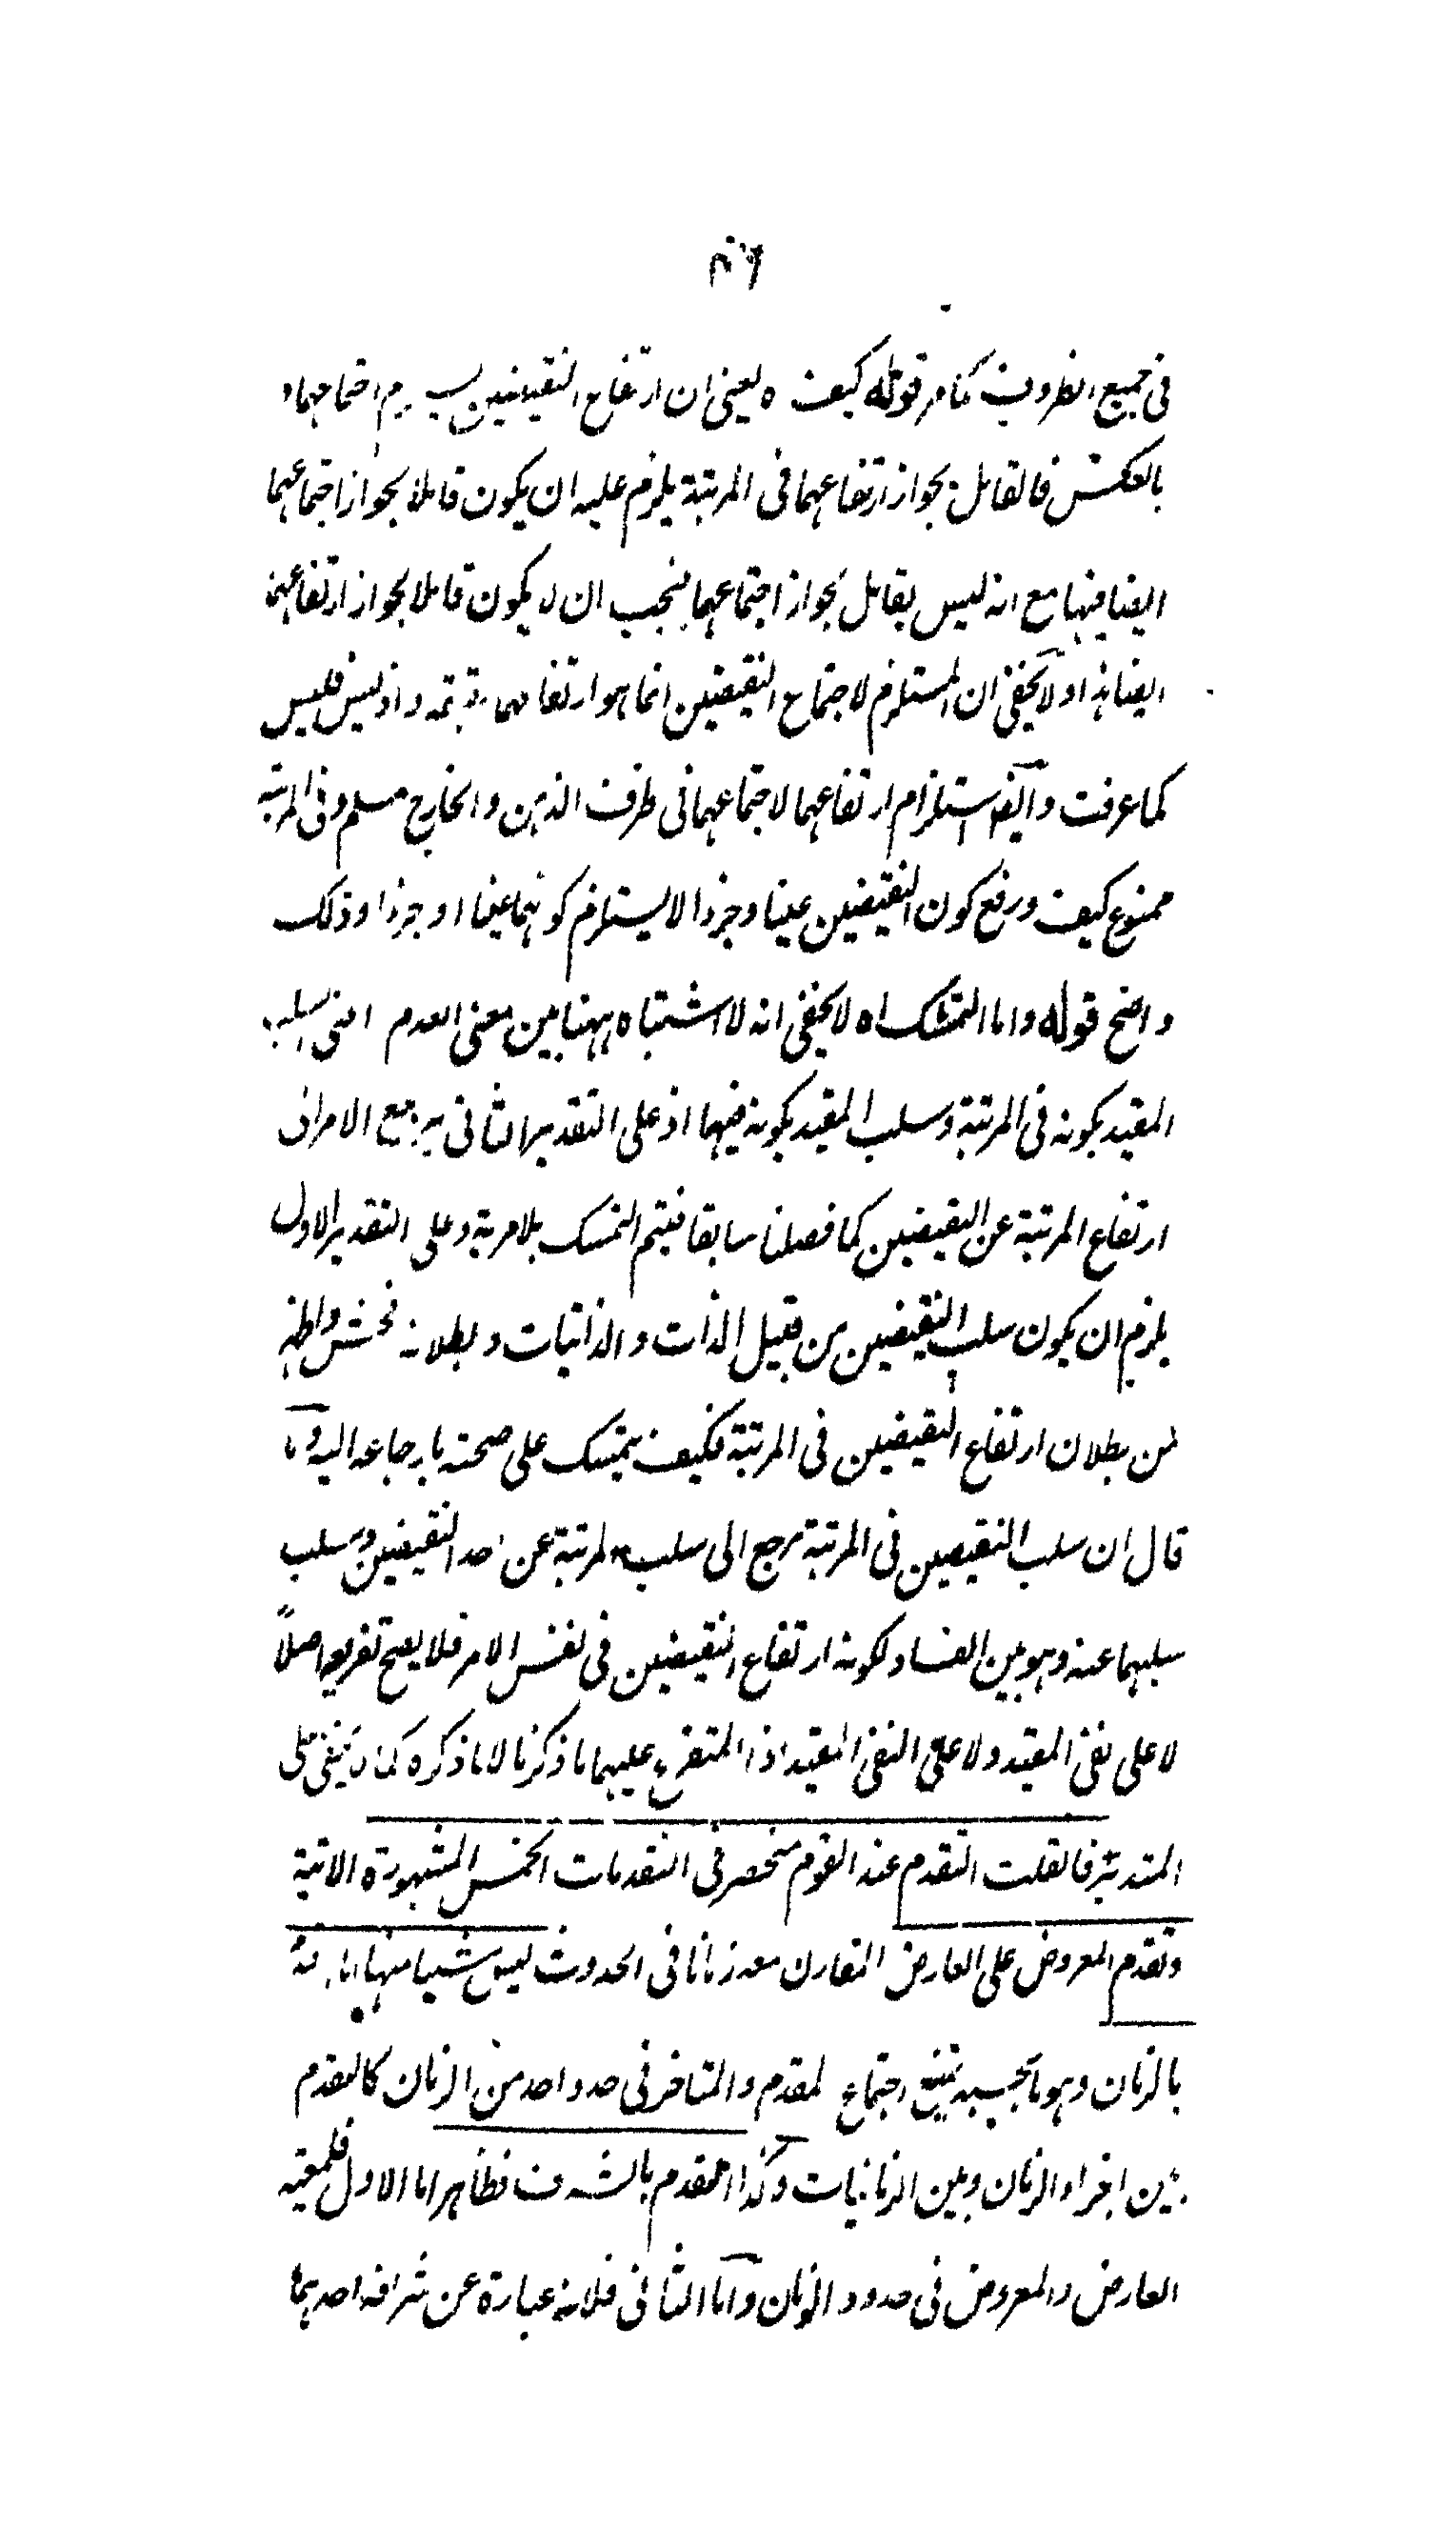 في جميع الظروف كما مر قوله كيف ه يعني ان ارتفاع النقيضين اجتماعهما و
بالعكس فالقائل بجواز ارتفاعهما في المرتبة يلزم عليه ان يكون قائلا بجواز اجتماعهما
ايضا فيها مع انه ليس بقائل بجواز اجتماعهما فيجب ان لا يكون قائلا بجواز ارتفاعهما
ايضا هذا ولا يخفى ان المستلزم لاجتماع النقيضين انما هو ارتفاعهما واذ ليس فليس
كما عرفت وايضا استلزام ارتفاعهما لاجتماعهما في ظرف الذهن والخارج مسلم وفي المرتبة
ممنوع كيف ورفع كون النقيضين عينا وجزءا لا يستلزم كونهما عينا او جزءا وذلك
واضح قوله واما التمسك اه لا يخفى انه لا اشتباه ههنا بين معنى العدم اعني السلب
المقيد بكونه في المرتبة وسلب المقيد بكونه فيها اذ على التقدير الثاني يرجع الامر الى
ارتفاع المرتبة عن النقيضين كما فصلنا سابقا فيتم التمسك بلا مرية وعلى التقدير الاول
يلزم ان يكون سلب النقيضين من قبيل الذات والذاتيات وبطلانه فحش واظهر
من بطلان ارتفاع النقيضين في المرتبة فكيف يتمسك على صحته بارجاعه اليه وما
قال ان سلب النقيضين في المرتبة يرجع الى سلب المرتبة عن احد النقيضين وسلب
سلبهما عنه وهو بين الفساد لكونه ارتفاع النقيضين في نفس الامر فلا يصح تفريعه اصلاً
لا على نفي المقيد ولا على النفي المقيد اذ المتفرع عليهما ما ذكرنا لا ما ذكره كما لا يخفى على
المتدبر فان قلت التقدم عند القوم منحصر في التقدمات الخمس المشهورة الاتية
وتقدم المعروض على العارض المقارن معه زمانا في الحدوث ليس شيئا منها اما
بالزمان وهو ما بحسبه يمتنع اجتماع المتقدم والمتاخر في حد واحد من الزمان كالتقدم
بين اجزاء الزمان وبين الزمانيات وكذا التقدم بالشرف فظاهر اما الاول فلمعية
العارض والمعروض في حدود الزمان واما الثاني فلانه عبارة عن شرافة احدهما